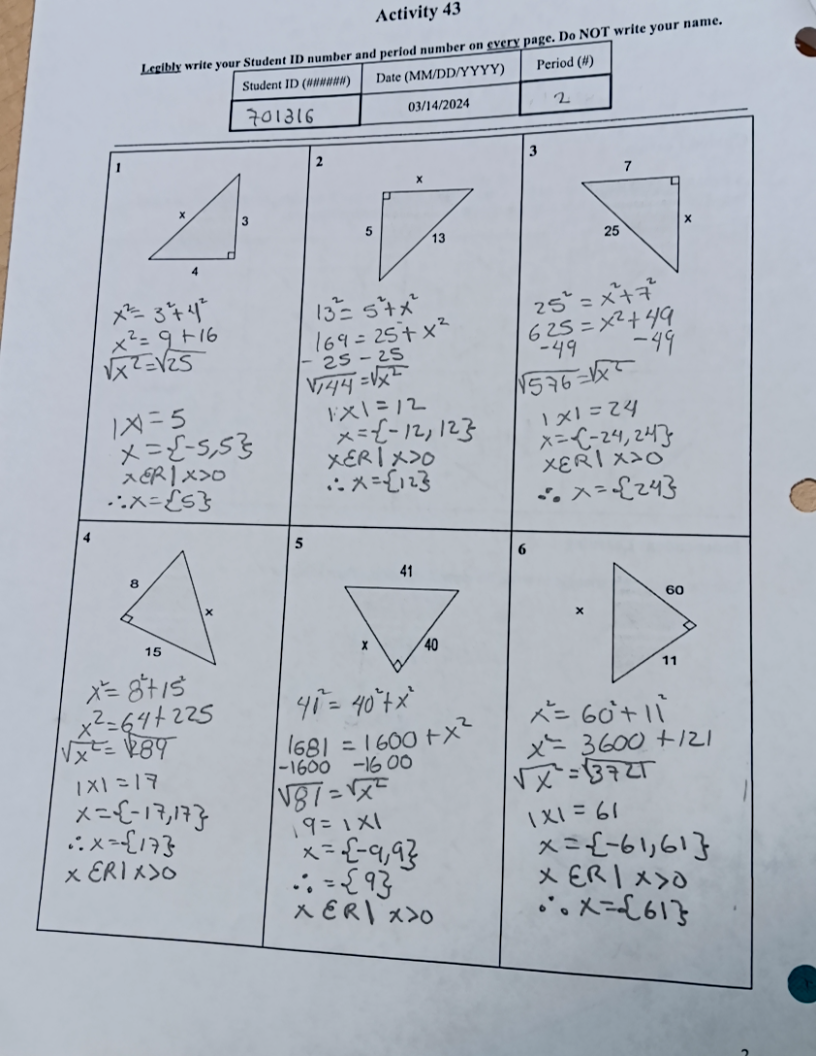 Activity 43
Legibly write your Student ID number and period number on every page. Do NOT write your name.
Student ID (######) Date (MM/DD/YYYY) Period (#)
701316 03/14/2024 2
1
x
3
4
x² = 3² + 4²
x² = 9 + 16
√x² = √25
|x| = 5
x = {-5,5}
xεR | x>0
∴ x = {5}
2
x
5
13
13² = 5² + x²
169 = 25 + x²
- 25 - 25
√144 = √x²
|x| = 12
x = {-12, 12}
xεR | x>0
∴ x = {12}
3
7
x
25
25² = x² + 7²
625 = x² + 49
-49 -49
√576 = √x²
|x| = 24
x = {-24, 24}
xεR | x>0
∴ x = {24}
4
8
x
15
x² = 8² + 15²
x² = 64 + 225
√x² = √289
|x| = 17
x = {-17, 17}
∴ x = {17}
x εR | x>0
5
41
x
40
41² = 40² + x²
1681 = 1600 + x²
-1600 -1600
√81 = √x²
9 = |x|
x = {-9, 9}
∴ = {9}
x εR | x>0
6
60
x
11
x² = 60² + 11²
x² = 3600 + 121
√x² = √3721
|x| = 61
x = {-61, 61}
x εR | x>0
∴ x = {61}